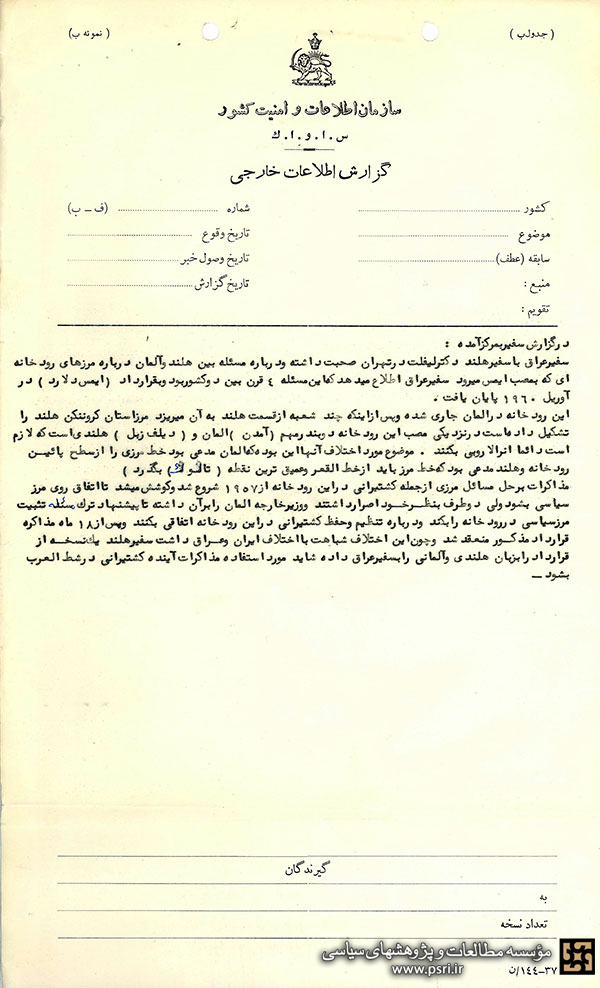 ( جدول ب )
( نمونه ب )
سازمان اطلاعات و امنیت کشور
س . ا . و . ا . ك
گزارش اطلاعات خارجی
کشور
شماره (ف ـ ب)
موضوع
تاریخ وقوع
سابقه (عطف)
تاریخ وصول خبر
منبع :
تاریخ گزارش
تقویم :
درگزارش سفیر بمرکز آمده :
سفیرعراق با سفیر هلند دکتر لیفلت در تهران صحبت داشته و درباره مسئله بین هلند و آلمان درباره مرزهای رودخانه
ای که بمصب ایمس میرود سفیرعراق اطلاع میدهد که این مسئله ٤ قرن بین دو کشور بود و بقرارداد ( ایمس دلارد ) در
آوریل ۱۹٦۰ پایان یافت .
این رودخانه در المان جاری شده و پس از اینکه چند شعبه از قسمت هلند به آن میریزد مرز استان کرونتکن هلند را
تشکیل داده است در نزدیکی مصب این رودخانه دو بندر مهم (آمدن ) المان و ( دیلف زیل ) هلندی است که لازم
است دائما انرا لاروبی بکنند . موضوع مورد اختلاف آنها این بوده که المان مدعی بود خط مرزی را از سطح پائیــن
رودخانه و هلند مدعی بود که خط مرز باید از خط القعر و عمیق ترین نقطه ( تالوك ) بگذرد )
مذاکرات بر حل مسائل مرزی از جمله کشتیرانی در این رودخانه از ۱۹٥۷ شروع شد و کوشش میشد تا اتفاق روی مرز
سیاسی بشود ولی دو طرف بنظر خود اصرار داشتند و وزیر خارجه المان را بر آن داشته تا پیشنهاد ترك مسئله تثبیت
مرز سیاسی در رودخانه را بکند و درباره تنظیم و حفظ کشتیرانی در این رودخانه اتفاقی بکنند و پس از ۱۸ ماه مذاکره
قرارداد مذکور منعقد شد و چون این اختلاف شباهت با اختلاف ایران و عراق داشت سفیر هلند یك نسخه از
قرارداد را بزبان هلندی و آلمانی را بسفیر عراق داده شاید مورد استفاده مذاکرات آینده کشتیرانی در شط العرب
بشود ــ
گیرندگان
به
تعداد نسخه
مؤسسه مطالعات و پژوهشهای سیاسی
www.psri.ir
۳۷-۱٤٤/ن